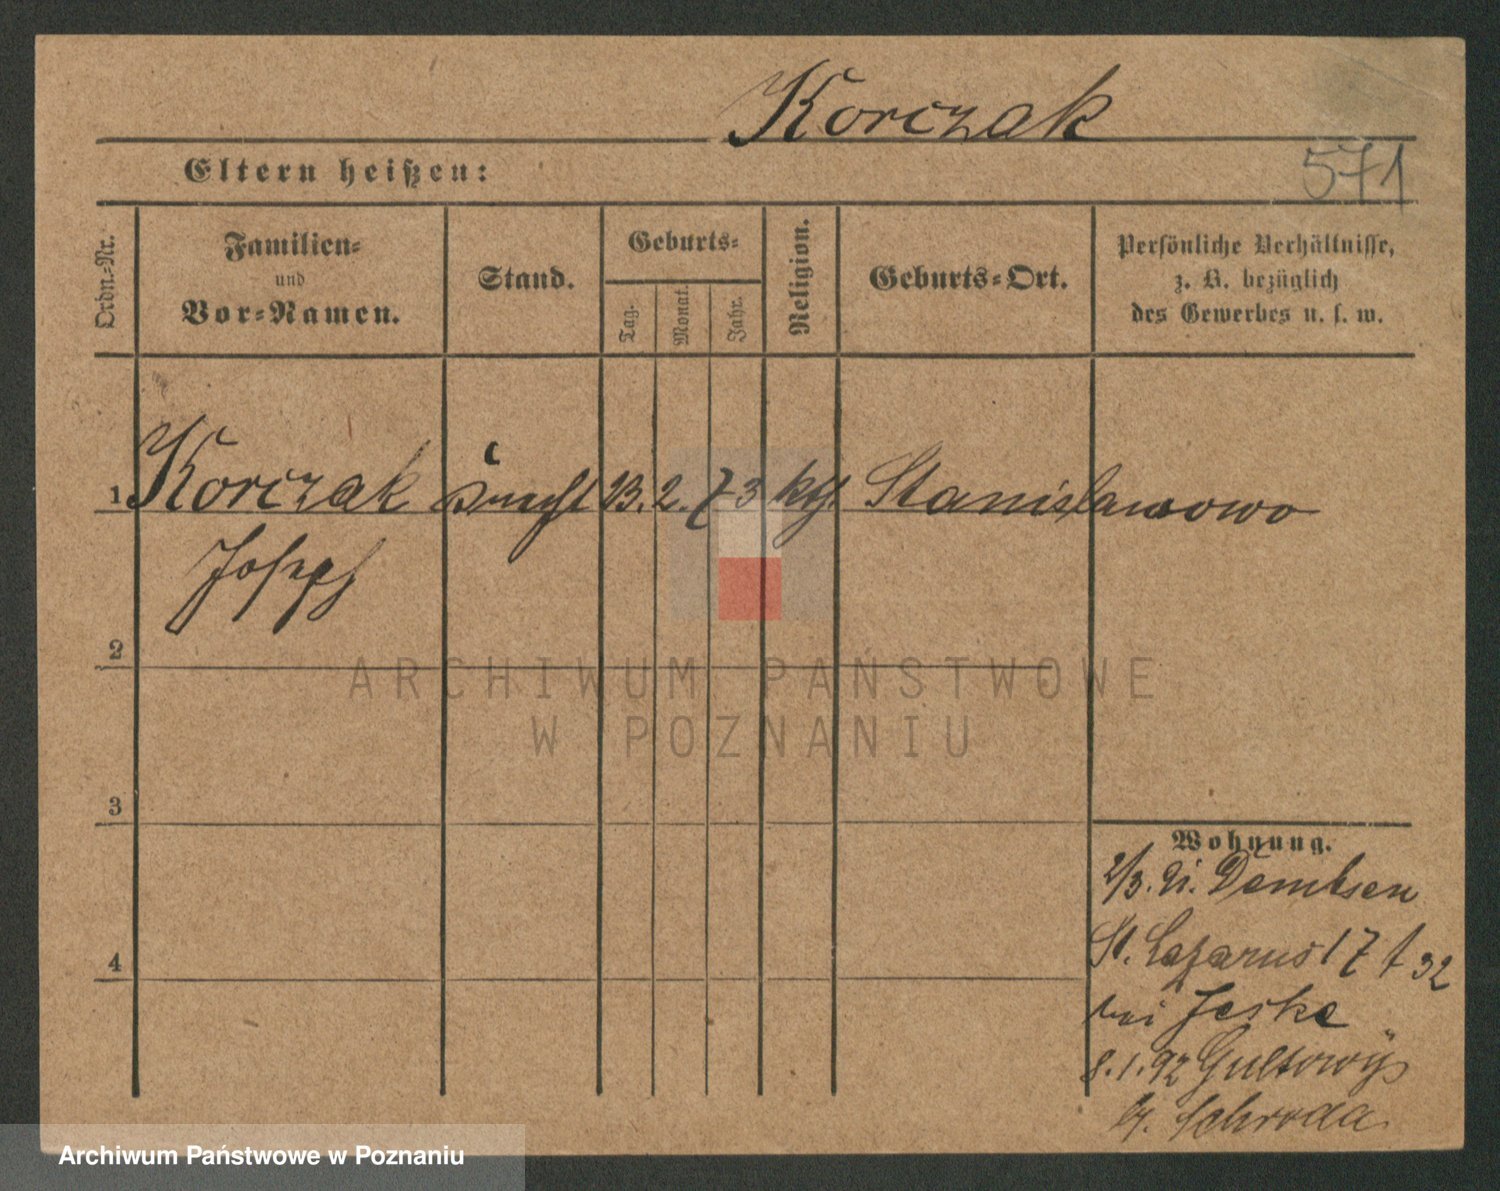 Korczak
Eltern heißen:
571
Ordn.-Nr.
Familien-
und
Vor-Namen.
Stand.
Geburts-
Tag.
Monat.
Jahr.
Religion.
Geburts-Ort.
Persönliche Verhältnisse,
z. B. bezüglich
des Gewerbes u. s. w.
1 Korczak Knecht 13. 2. 73 kth. Stanislawowo
Joseph
2
3
4
ARCHIWUM PAŃSTWOWE
W POZNANIU
Wohnung.
2/3. 91. Dembsen
St. Lazarus 17 f 32
bei Jeske
8.1.92 Gultowy
Schroda
Archiwum Państwowe w Poznaniu